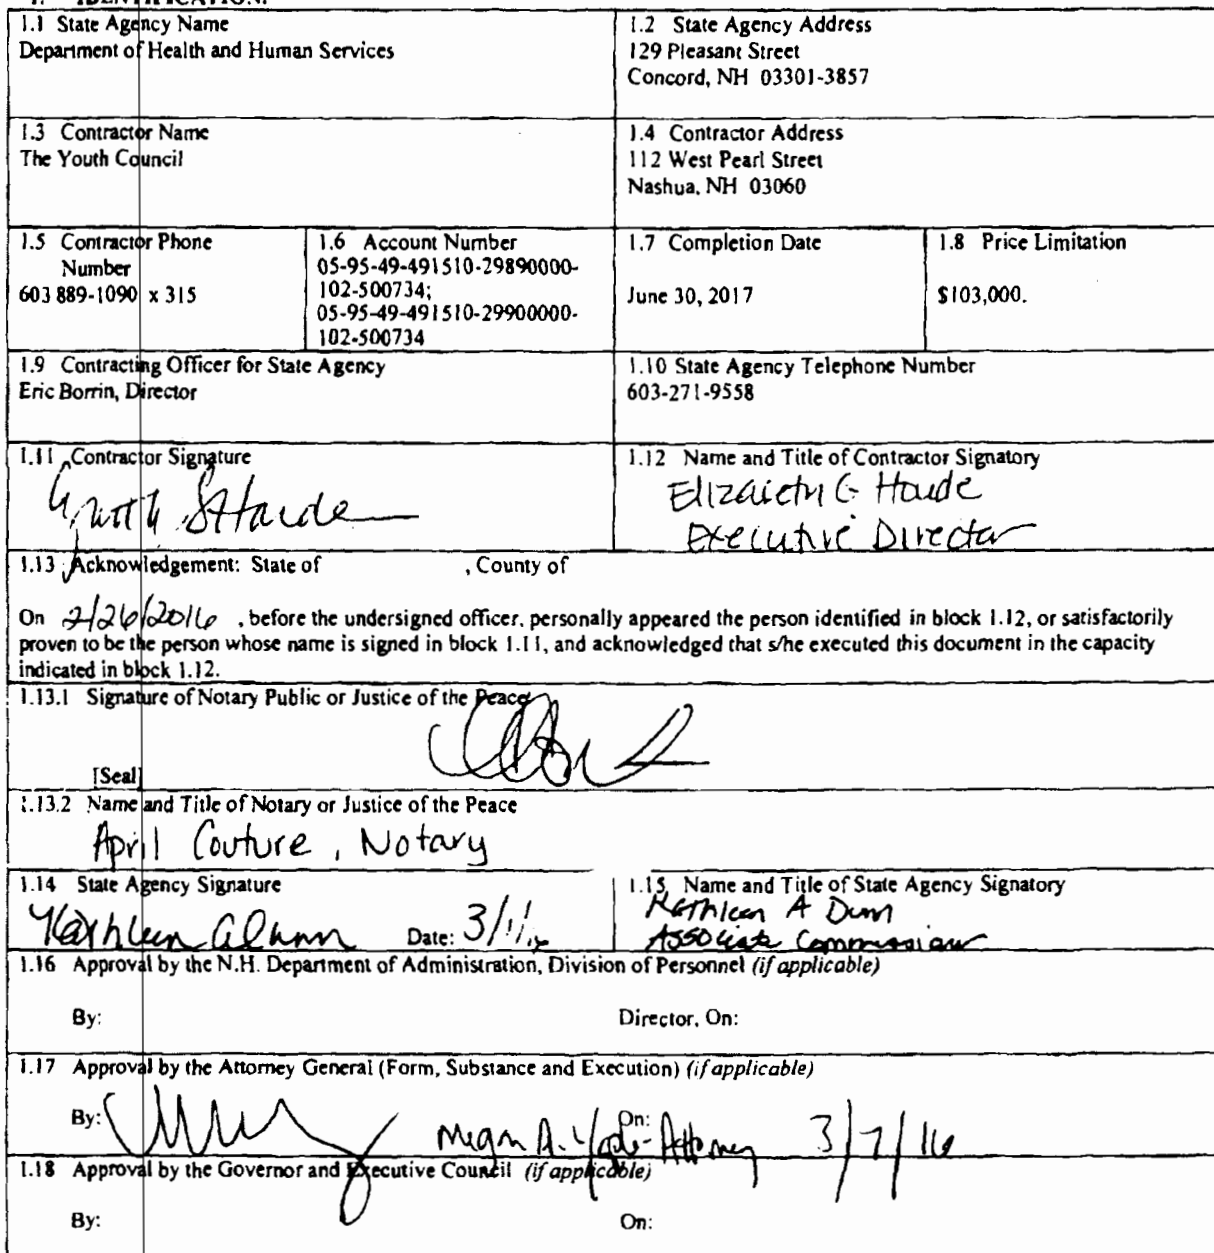 1. IDENTIFICATION.
1.1 State Agency Name
Department of Health and Human Services
1.2 State Agency Address
129 Pleasant Street
Concord, NH 03301-3857
1.3 Contractor Name
The Youth Council
1.4 Contractor Address
112 West Pearl Street
Nashua, NH 03060
1.5 Contractor Phone
Number
603 889-1090 x 315
1.6 Account Number
05-95-49-491510-29890000-
102-500734;
05-95-49-491510-29900000-
102-500734
1.7 Completion Date
June 30, 2017
1.8 Price Limitation
$103,000.
1.9 Contracting Officer for State Agency
Eric Borrin, Director
1.10 State Agency Telephone Number
603-271-9558
1.11 Contractor Signature
1.12 Name and Title of Contractor Signatory
Elizabeth G Houde
Executive Director
1.13 Acknowledgement: State of , County of
On 2/26/2016 , before the undersigned officer, personally appeared the person identified in block 1.12, or satisfactorily
proven to be the person whose name is signed in block 1.11, and acknowledged that s/he executed this document in the capacity
indicated in block 1.12.
1.13.1 Signature of Notary Public or Justice of the Peace
[Seal]
1.13.2 Name and Title of Notary or Justice of the Peace
April Couture, Notary
1.14 State Agency Signature
Kathleen A Dunn Date: 3/1/16
1.15 Name and Title of State Agency Signatory
Kathleen A Dunn
Associate Commissioner
1.16 Approval by the N.H. Department of Administration, Division of Personnel (if applicable)
By: Director, On:
1.17 Approval by the Attorney General (Form, Substance and Execution) (if applicable)
By: On:
Megan A. - Attorney 3/7/16
1.18 Approval by the Governor and Executive Council (if applicable)
By: On: